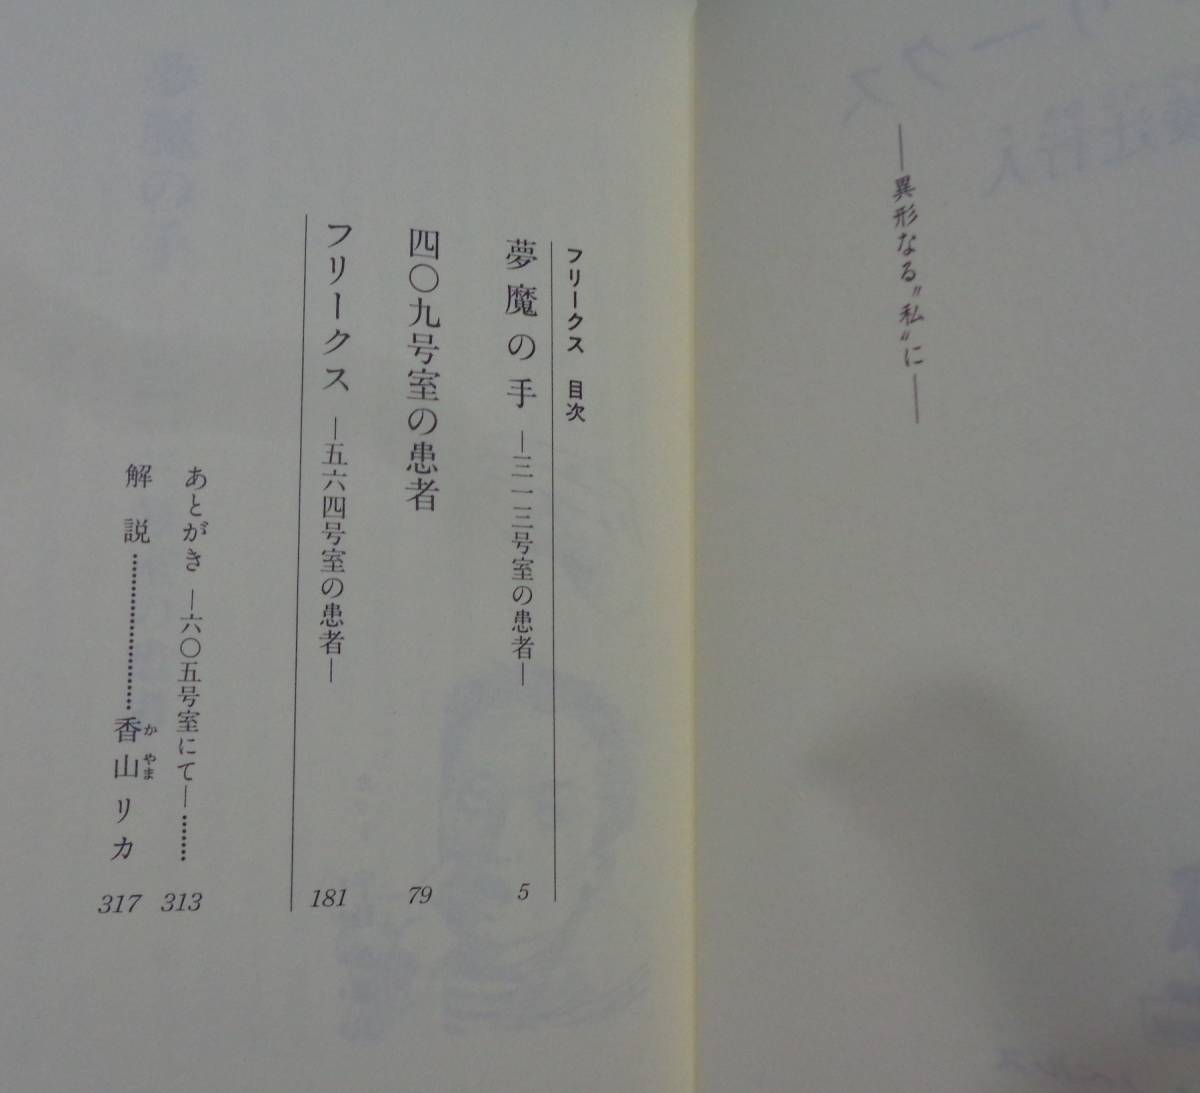 ——異形なる〝私〟に——
フリークス 目次
夢魔の手 —三一三号室の患者— 5
四〇九号室の患者 79
フリークス —五六四号室の患者— 181
あとがき —六〇五号室にて— ……… 313
解説 ……………………… 香山リカ 317
か やま